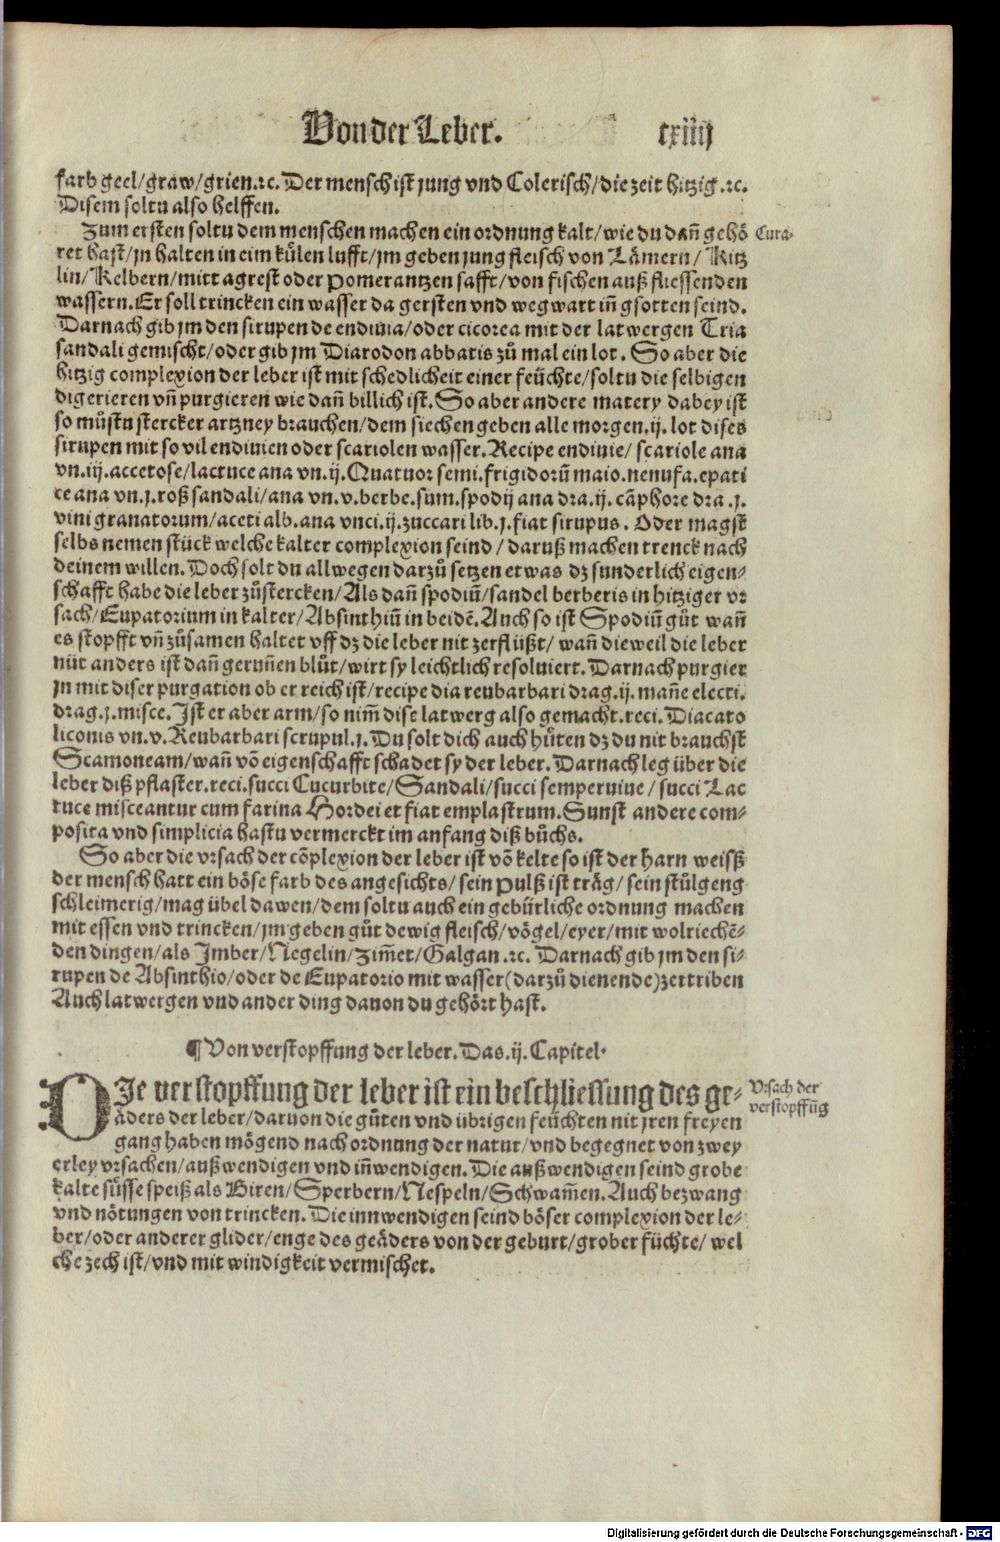 Von der Leber. cxiiij
farb geel/graw/grien.ꝛc. Der mensch ist jung vnd Colerisch/die zeit hitzig.ꝛc.
Disem soltu also helffen.
Zum ersten soltu dem menschen machen ein ordnung kalt/wie du dañ gehö
Cura.
ret hast/jn halten in eim kůlen lufft/jm geben jung fleisch von Lämern/ Kitz
lin/Kelbern/mitt agrest oder Pomerantzen safft/von fischen auß fliessenden
wassern. Er soll trincken ein wasser da gersten vnd wegwart iñ gsotten seind.
Darnach gib jm den sirupen de endiuia/oder cicorea mit der latwergen Tria
sandali gemischt/oder gib jm Diarodon abbatis zů mal ein lot. So aber die
hitzig complexion der leber ist mit schedlicheit einer feüchte/soltu die selbigen
digerieren vñ purgieren wie dañ billich ist. So aber andere matery dabey ist
so můstu stercker artzney brauchen/dem siechen geben alle morgen.ij. lot dises
sirupen mit so vil endiuien oder scariolen wasser. Recipe endiuie/ scariole ana
vn.iij.accetose/lactuce ana vn.ij. Quatuor semi.frigidorũ maio.nenufa.epati
ce ana vn.j.roß sandali/ana vn.v.berbe.sum.spodij ana dra.ij. cãphore dra.j.
vini granatorum/aceti alb.ana vnci.ij.zuccari lib.j.fiat sirupus. Oder magst
selbs nemen stück welche kalter complexion seind/daruß machen trenck nach
deinem willen. Doch solt du allwegen darzů setzen etwas dz sunderlich eigen-
schafft habe die leber zůstercken/Als dañ spodiũ/sandel berberis in hitziger vr
sach/Eupatorium in kalter/Absinthiũ in beidẽ. Auch so ist Spodiũ gůt wañ
es stopfft vñ zůsamen haltet vff dz die leber nit zerflüßt/ wañ dieweil die leber
nüt anders ist dañ geruñen blůt/wirt sy leichtlich resoluiert. Darnach purgier
jn mit diser purgation ob er reich ist/recipe dia reubarbari drag.ij. mañe electi.
drag.j.misce. Ist er aber arm/so nim̃ dise latwerg also gemacht.reci. Diacato
liconis vn.v. Reubarbari scrupul.j. Du solt dich auch hůten dz du nit brauchst
Scamoneam/wañ võ eigenschafft schadet sy der leber. Darnach leg über die
leber diß pflaster.reci.succi Cucurbite/Sandali/succi semperuiue/succi Lac
tuce misceantur cum farina Hordei et fiat emplastrum. Sunst andere com-
posita vnd simplicia hastu vermerckt im anfang diß bůchs.
So aber die vrsach der cõplexion der leber ist võ kelte so ist der harn weisß
der mensch hatt ein böse farb des angesichts/sein Pulß ist träg/sein stůlgeng
schleimerig/mag übel dawen/dem soltu auch ein gebürliche ordnung machen
mit essen vnd trincken/jm geben gůt dewig fleisch/vögel/eyer/mit wolriechẽ-
den dingen/als Imber/Negelin/Zim̃et/Galgan.ꝛc. Darnach gib jm den si-
rupen de Absinthio/oder de Eupatorio mit wasser(darzů dienende)zertriben
Auch latwergen vnd ander ding dauon du gehört hast.
¶ Von verstopffung der leber. Das.ij. Capitel.
DIe verstopffung der leber ist ein beschliessung des ge-
Vrsach der
verstopffũg
äders der leber/daruon die gůten vnd übrigen feüchten nit jren freyen
gang haben mögend nach ordnung der natur/vnd begegnet von zwey
erley vrsachen/außwendigen vnd iñwendigen. Die außwendigen seind grobe
kalte süsse speiß als Biren/Sperbern/Nespeln/Schwam̃en. Auch bezwang
vnd nötungen von trincken. Die innwendigen seind böser complexion der le-
ber/oder anderer glider/enge des geäders von der geburt/grober füchte/ wel
che zech ist/vnd mit windigkeit vermischet.
Digitalisierung gefördert durch die Deutsche Forschungsgemeinschaft - DFG